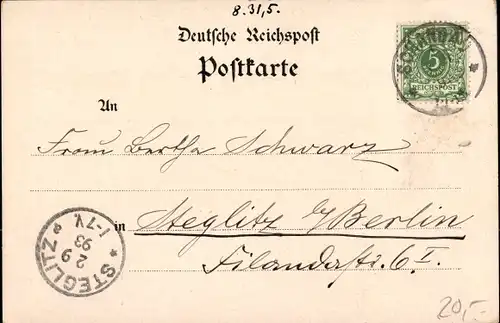 8.31,5.
Deutsche Reichspost
Postkarte
5
REICHSPOST
An
Frau Bertha Schwarz
in Steglitz b/Berlin
Filandastr. 6 I.
STEGLITZ
2 9
93
7-1 V.
20,-